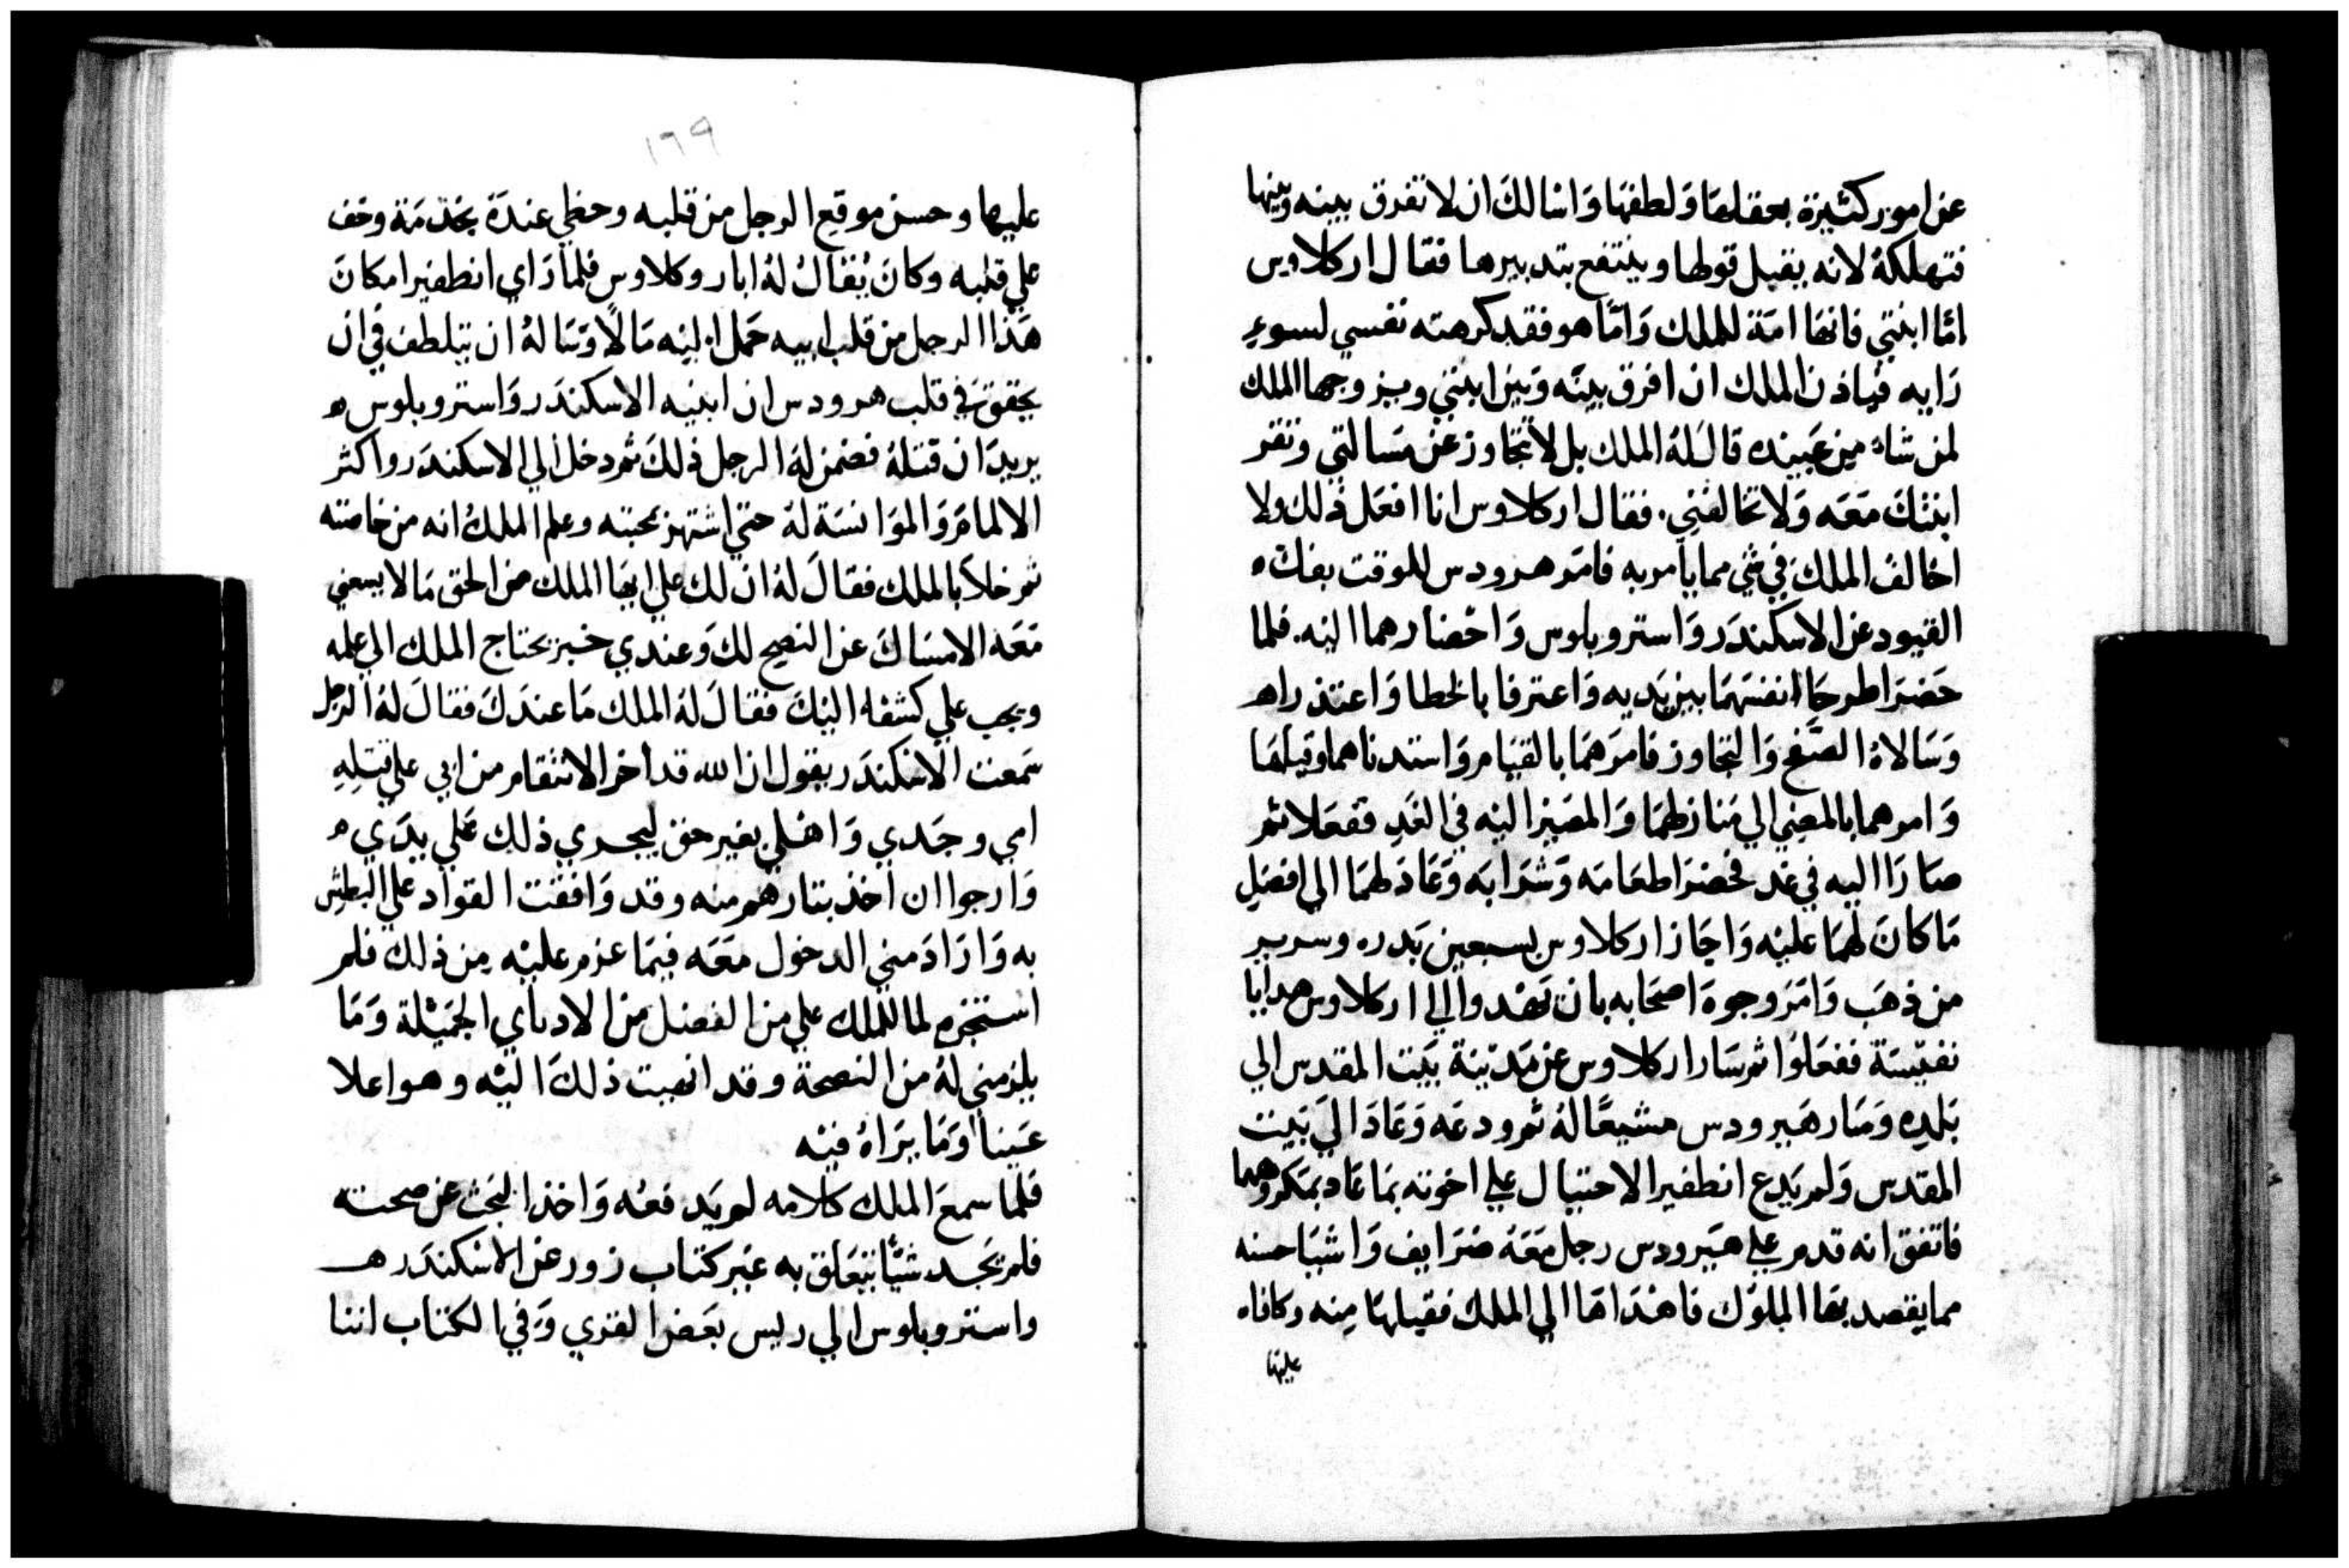 عن امور كثيرة بعقلها وَلطفها وَاسالكَ ان لا تفرق بينه وبينها
فتهلكهُ لانه يقبل قولها وينتفع بتدبيرها فقال اركلاوس
امّا ابنتي فانها امَة للملك وَامّا هو فقد كرهته نفسي لسوءِ
رَايه فياذن الملك ان افرق بينَه وَبين ابنتي ويزوجها الملك
لمن شاءَ مِن عَبيده قالَ لهُ الملك بل لا تتجاوز عن مسَالتي وتقر
ابنتكَ مَعَه وَلا تخالفني. فقال اركلاوس انا افعَل ذلك ولا
اخالف الملكَ في شي مما يامر به فامَر هرودس للوقت بفكّ ه
القيود عن الاسكندَر وَاستروبلوس وَاحْضارهما اليْه. فلما
حَضرَا طرحَا انفسَهمَا بين يَديه وَاعترفا بالخطا وَاعتذراه
وَسَالاهُ الصَّفح وَالتجاوز فامرَهمَا بالقيَام وَاستدناهما وقبلهَا
وَامرهما بالمضي الي مَنازلهمَا وَالمصَير اليْه في الغَدِ ففعَلا ثم
صَارَا اليه في غد فحضرَا طعَامَه وَشرَابَه وَعَادَ لهمَا الي افضلِ
مَا كانَ لهمَا عليْه وَاجَاز اركلاوس بسبعين بَدره وسرير
من ذهَب وَامَر وجوهَ اصحَابه بان تهْدوا الي اركلاوس هدايا
نفيْسَة ففعَلوُا ثم سَار اركلاوس عن مَديْنة بيَت المقدس الي
بَلدِه وَسَار هَيرودس مشيعًا لهُ ثم ودعَه وَعَادَ الي بَيت
المقدس وَلم يَدع انطفير الاحتيال علي اخوته بمَا عَاد بمَكروهما
فاتفق انه قدم علي هَيرودس رجل مَعَهُ ضرَايف وَاشيَا حسنه
مما يقصد بهَا الملوْك فاهْدَاهَا الي الملك فقبلهَا مِنه وكافاه
عليها
١٦٩
عليها وحسن موقع الرجل من قلبه وحظي عندَهُ بخدْمَة وخف
علي قلبه وكانَ يُقالُ لهُ اباروكلاوس فلما رَاي انطفير امكانَ
هَذا الرجل من قلب ابيه حَمل اليْه مَالًا وَسَالهُ ان يتلطف في ان
يحققَ في قلب هرودس ان ابنيه الاسكندَر وَاستروبلوس ه
يريدَان قتلهُ فضمن لهُ الرجل ذلكَ ثم دخل الي الاسكندَر واكثر
الالمامَ وَالموَانسَة لهُ حتي اشتهر بمحبته وعلم الملكُ انه من خاصته
ثم خلاَ بالملك فقالَ لهُ ان لك علي ايهَا الملك من الحق مَا لا يسعني
مَعَه الامسَاكَ عن النصح لكَ وَعندي خبر يحتاج الملك الي علمه
ويجب علي كشفه اليْكَ فقالَ لهُ الملك مَا عندَكَ فقالَ لهُ الرجل
سَمعت الاسْكندَر يقول ان الله قد اخر الانتقام من ابي علي قتلِهِ
امي وجَدي وَاهْلي بغير حق ليجري ذلك عَلي يدَي ه
وَارجوا ان اخذ بتارهم منه وقد وَافقْت القواد علي البطش
به وَارَادَ مني الدخول مَعَه فيمَا عزم عليْه مِن ذلك فلم
استخرم لما للملك علي من الفضل من الايادي الجَميْلة وَمَا
يلزمني لهُ من النصحة وقد انهيت ذلكَ اليْه وهو اعلا
عَينا وَمَا يرَاهُ فيْه
فلما سمعَ الملك كلامه لم يَدفعْه وَاخذ البَحث عن صحته
فلم يَجد شيًا يتعَلق به غير كتاب زور عن الاسْكندَر ه
واستروبلوس الي رليس بعَض القري وَفي الكتاب اننا